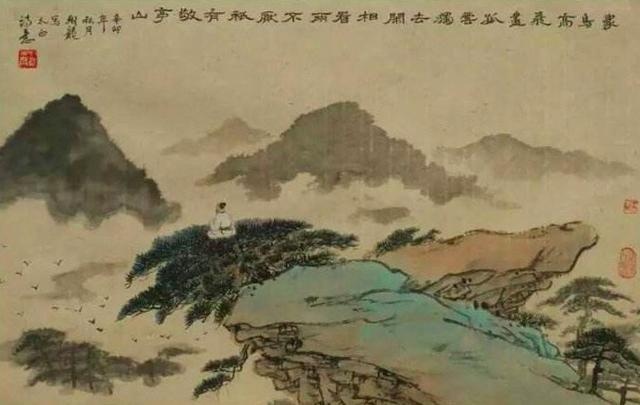 衆鳥高飛盡孤雲獨去閒相看兩不厭祇有敬亭山
辛卯
年
秋月
寫
太白
詩意